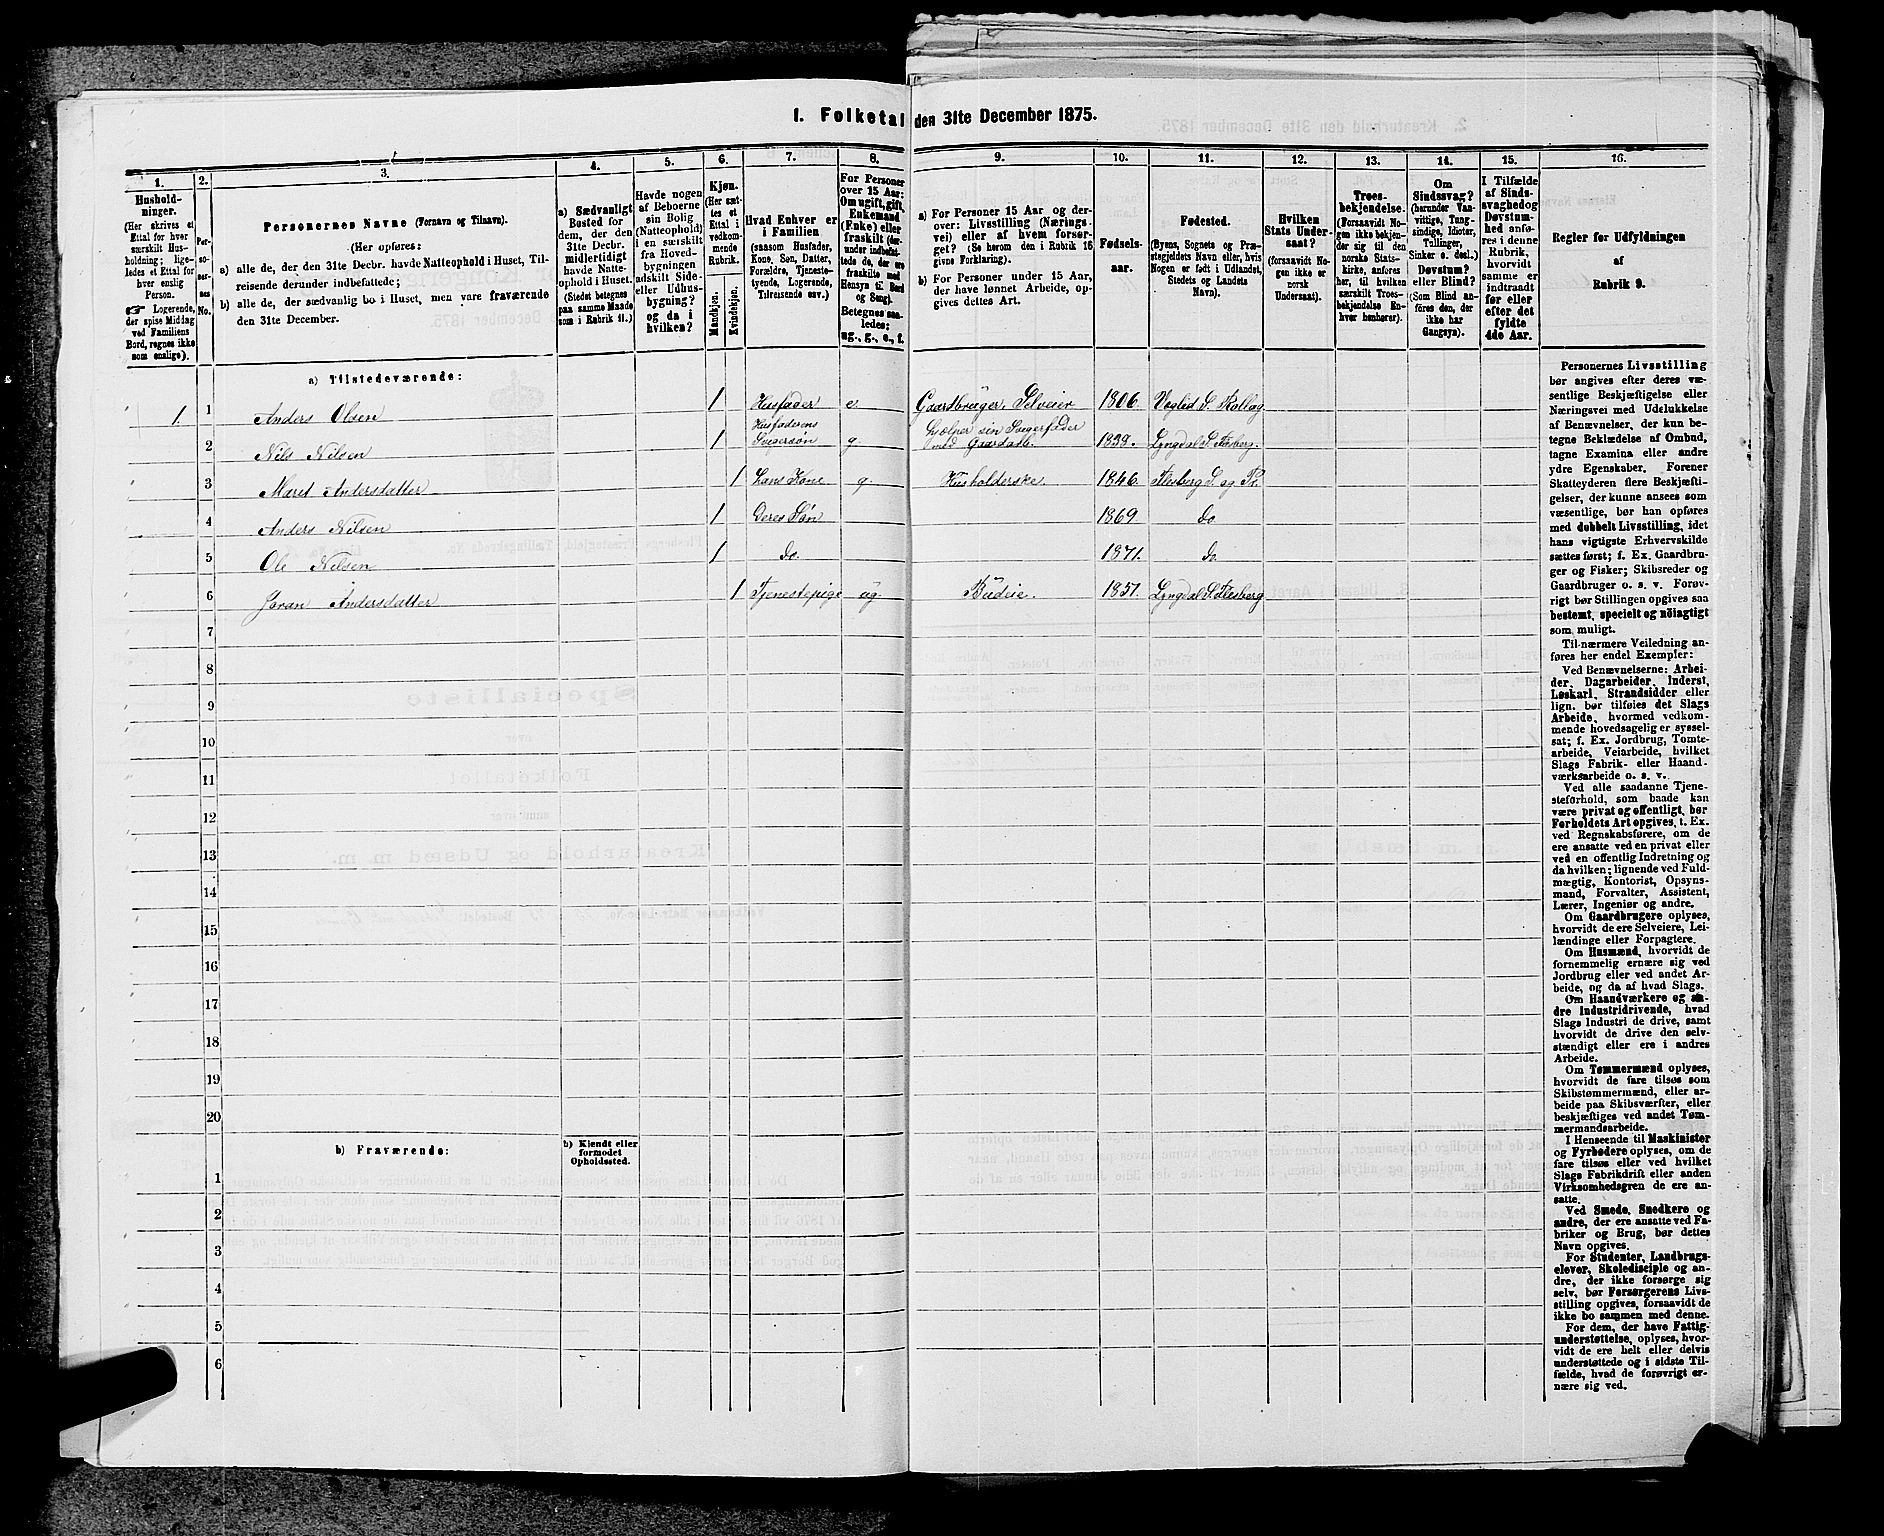 1. Folketal den 31te December 1875.
1.
2.
3.
4.
5.
6.
7.
8.
9.
10.
11.
12.
13.
14.
15.
16.
Hushold-
ninger.
(Her skrives et
Ettal for hver
særskilt Hus-
holdning; lige-
ledes et Ettal for
hver enslig
Person.
☞ Logerende,
der spise Middag
ved Familiens
Bord, regnes ikke
som enslige).
Per-
so-
ner-
nes
No.
Personernes Navne (Fornavn og Tilnavn).
(Her opføres:
a) alle de, der den 31te Decbr. havde Natteophold i Huset, Til-
reisende derunder indbefattede;
b) alle de, der sædvanlig bo i Huset, men vare fraværende
den 31te December.
a) Sædvanligt
Bosted for
dem, der den
31te Decbr.
midlertidigt
havde Natte-
ophold i Huset.
(Stedet betegnes
paa samme Maade
som i Rubrik 11.)
Havde nogen
af Beboerne
sin Bolig
(Natteophold)
i en særskilt
fra Hoved-
bygningen
adskilt Side-
eller Udhus-
bygning?
og da i
hvilken?
Kjøn.
(Her sæt-
tes et
Ettal i
vedkom-
mende
Rubrik.
Mandkjøn.
Kvindekjøn.
Hvad Enhver er
i Familien
(saasom Husfader,
Kone, Søn, Datter,
Forældre, Tjeneste-
tyende, Logerende,
Tilreisende osv.)
For Personer
over 15 Aar:
Om ugift, gift,
Enkemand
(Enke) eller
fraskilt (der-
under indbefat-
tede de, der ere
fraskilte med
Hensyn til Bord
og Seng).
Betegnes saa-
ledes:
ug., g., e., f.
a) For Personer 15 Aar og der-
over: Livsstilling (Nærings-
vei) eller af hvem forsør-
get? (Se herom den i Rubrik 16
givne Forklaring).
b) For Personer under 15 Aar,
der have lønnet Arbeide, op-
gives dettes Art.
Fødsels-
aar.
Fødested.
(Byens, Sognets og Præ-
stegjeldets Navn eller, hvis
Nogen er født i Udlandet,
Stedets og Landets
Navn).
Hvilken
Stats Under-
saat?
(forsaavidt No-
gen ikke er
norsk
Undersaat).
Troes-
bekjendelse.
(Forsaavidt No-
gen ikke bekjen-
der sig til den
norske Stats-
kirke, anføres
her, til hvilken
særskilt Troes-
bekjendelse En-
hver henhører).
Om
Sindssvag?
(herunder Van-
vittige, Tung-
sindige, Idioter,
Tullinger,
Sinker o. desl.)
Døvstum?
eller Blind?
(Som Blind an-
føres den, der
ikke har
Gangsyn).
I Tilfælde
af Sinds-
svaghed og
Døvstum-
hed anfø-
res i denne
Rubrik,
hvorvidt
samme er
indtraadt
før eller
efter det
fyldte
4de Aar.
Regler for Udfyldningen
af
Rubrik 9.
a) Tilstedeværende:
1. 1 Anders Olsen 1 Husfader e. Gaardbruger, Selveier 1806. Veglid S. Rollag
2 Nils Nilsen 1 Husfaderens Svigersøn g. hjælper sin Svigerfader med Gaardarb. 1838. Lyngdal S. Flesberg.
3 Maret Andersdatter 1 hans Kone g. Husholderske. 1846. Flesberg S. og Pr.
4 Anders Nilsen 1 Deres Søn 1869. do.
5 Ole Nilsen 1 do. 1871. do.
6 Joran Andersdatter 1 Tjenestepige ug. Budeie. 1857. Lyngdal S. Flesberg
7
8
9
10
11
12
13
14
15
16
17
18
19
20
b) Fraværende:
b) Kjendt eller
formodet
Opholdssted.
1
2
3
4
5
6
Personernes Livsstilling
bør angives efter deres væ-
sentlige Beskjæftigelse eller
Næringsvei med Udelukkelse
af Benævnelser, der kun be-
tegne Beklædelse af Ombud,
tagne Examina eller andre
ydre Egenskaber. Forener
Skatteyderen flere Beskjæfti-
gelser, der kunne ansees som
væsentlige, bør han opføres
med dobbelt Livsstilling, idet
hans vigtigste Erhvervskilde
sættes først; f. Ex. Gaardbru-
ger og Fisker; Skibsreder og
Gaardbruger o. s. v. Forøv-
rigt bør Stillingen opgives saa
bestemt, specielt og nöiagtigt
som muligt.
Til nærmere Veiledning an-
føres her endel Exempler:
Ved Benævnelserne: Arbei-
der, Dagarbeider, Inderst,
Løskarl, Strandsidder eller
lign. bør tilføies det Slags
Arbeide, hvormed vedkom-
mende hovedsagelig er syssel-
sat; f. Ex. Jordbrug, Tomte-
arbeide, Veiarbeide, hvilket
Slags Fabrik- eller Haand-
værksarbeide o. s. v.
Ved alle saadanne Tjene-
steforhold, som baade kan
være privat og offentligt, bør
Forholdets Art opgives, t. Ex.
ved Regnskabsførere, om de
ere ansatte ved en privat eller
ved en offentlig Indretning og
da hvilken; lignende ved Fuld-
mægtig, Kontorist, Opsyns-
mand, Forvalter, Assistent,
Lærer, Ingeniør og andre.
Om Gaardbrugere oplyses,
hvorvidt de ere Selveiere, Lei-
lændinge eller Forpagtere.
Om Husmænd, hvorvidt de
fornemmelig ernære sig ved
Jordbrug eller ved andet Ar-
beide, og da af hvad Slags.
Om Haandværkere og an-
dre Industridrivende, hvad
Slags Industri de drive, samt
hvorvidt de drive den selv-
stændigt eller ere i andres
Arbeide.
Om Tømmermænd oplyses,
hvorvidt de fare tilsøs som
Skibstømmermænd, eller ar-
beide paa Skibsværfter, eller
beskjæftiges ved andet Tøm-
mermandsarbeide.
I Henseende til Maskinister
og Fyrbødere oplyses, om de
fare tilsøs eller ved hvilket
Slags Fabrikdrift eller anden
Virksomhedsgren de ere an-
satte.
Ved Smede, Snedkere og
andre, der ere ansatte ved Fa-
briker og Brug, bør dettes
Navn opgives.
For Studenter, Landbrugs-
elever, Skoledisciple og an-
dre, der ikke forsørge sig
selv, bør Forsørgerens Livs-
stilling opgives, forsaavidt de
ikke bo sammen med denne.
For dem, der have Fattig-
understøttelse, oplyses, hvor-
vidt de ere helt eller delvis
understøttede og i sidste Til-
fælde, hvad de forøvrigt er-
nære sig ved.